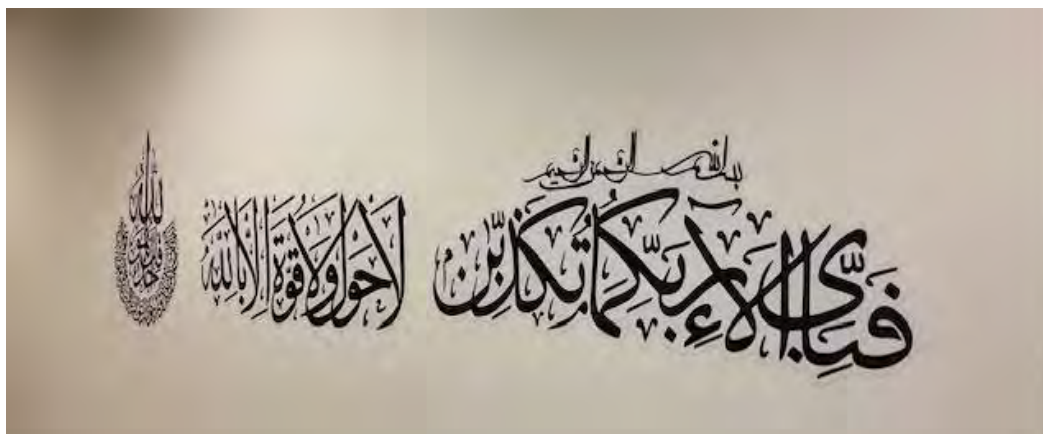 بسم الله الرحمن الرحيم
فَبِأَيِّ آلَاءِ رَبِّكُمَا تُكَذِّبَانِ
لَا حَوْلَ وَلَا قُوَّةَ إِلَّا بِاللَّهِ
الله